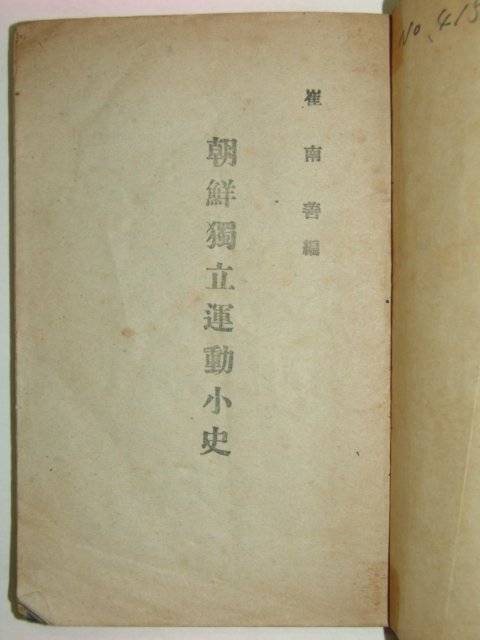 No. 415
崔南善編
朝鮮獨立運動小史